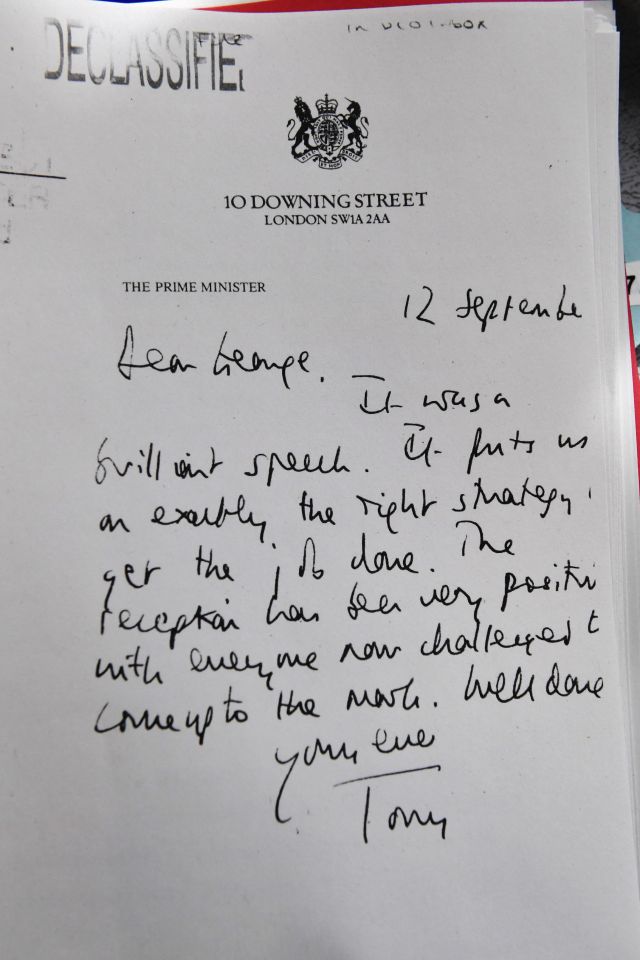 DECLASSIFIE
10 DOWNING STREET
LONDON SW1A 2AA
THE PRIME MINISTER
12 Septembe
Dear George.
It was a
brilliant speech. It puts us
on exactly the right strategy
get the job done. The
reception has been very positiv
with everyone now challenged t
come up to the mark. Well done
Yours ever
Tony
7